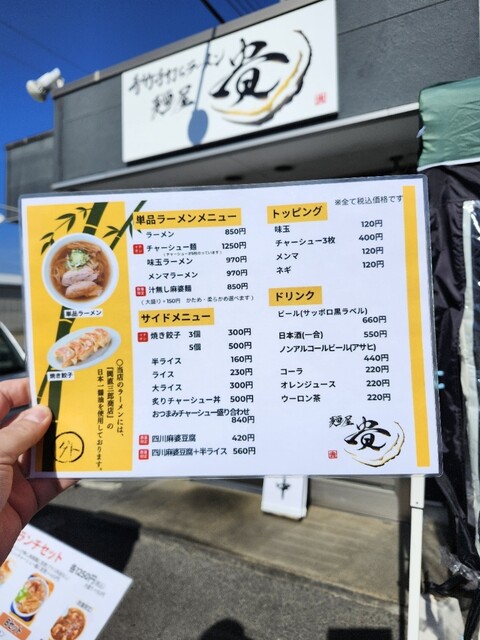 青竹手打ちラーメン
麺屋 貴
※全て税込価格です
単品ラーメンメニュー
ラーメン 850円
チャーシュー麺 1250円
味玉ラーメン 970円
メンマラーメン 970円
汁無し麻婆麺 850円
（大盛り+150円 かため・柔らかめ選べます）
単品ラーメン
焼き餃子
〇当店のラーメンには、
『岡直三郎商店』の
日本一醤油を使用しております。
サイドメニュー
焼き餃子 3個 300円
5個 500円
半ライス 160円
ライス 230円
大ライス 300円
炙りチャーシュー丼 500円
おつまみチャーシュー盛り合わせ
840円
四川麻婆豆腐 420円
四川麻婆豆腐+半ライス 560円
トッピング
味玉 120円
チャーシュー3枚 400円
メンマ 120円
ネギ 120円
ドリンク
ビール(サッポロ黒ラベル)
660円
日本酒(一合) 550円
ノンアルコールビール(アサヒ)
440円
コーラ 220円
オレンジジュース 220円
ウーロン茶 220円
麺屋 貴
ランチセット
各1250円